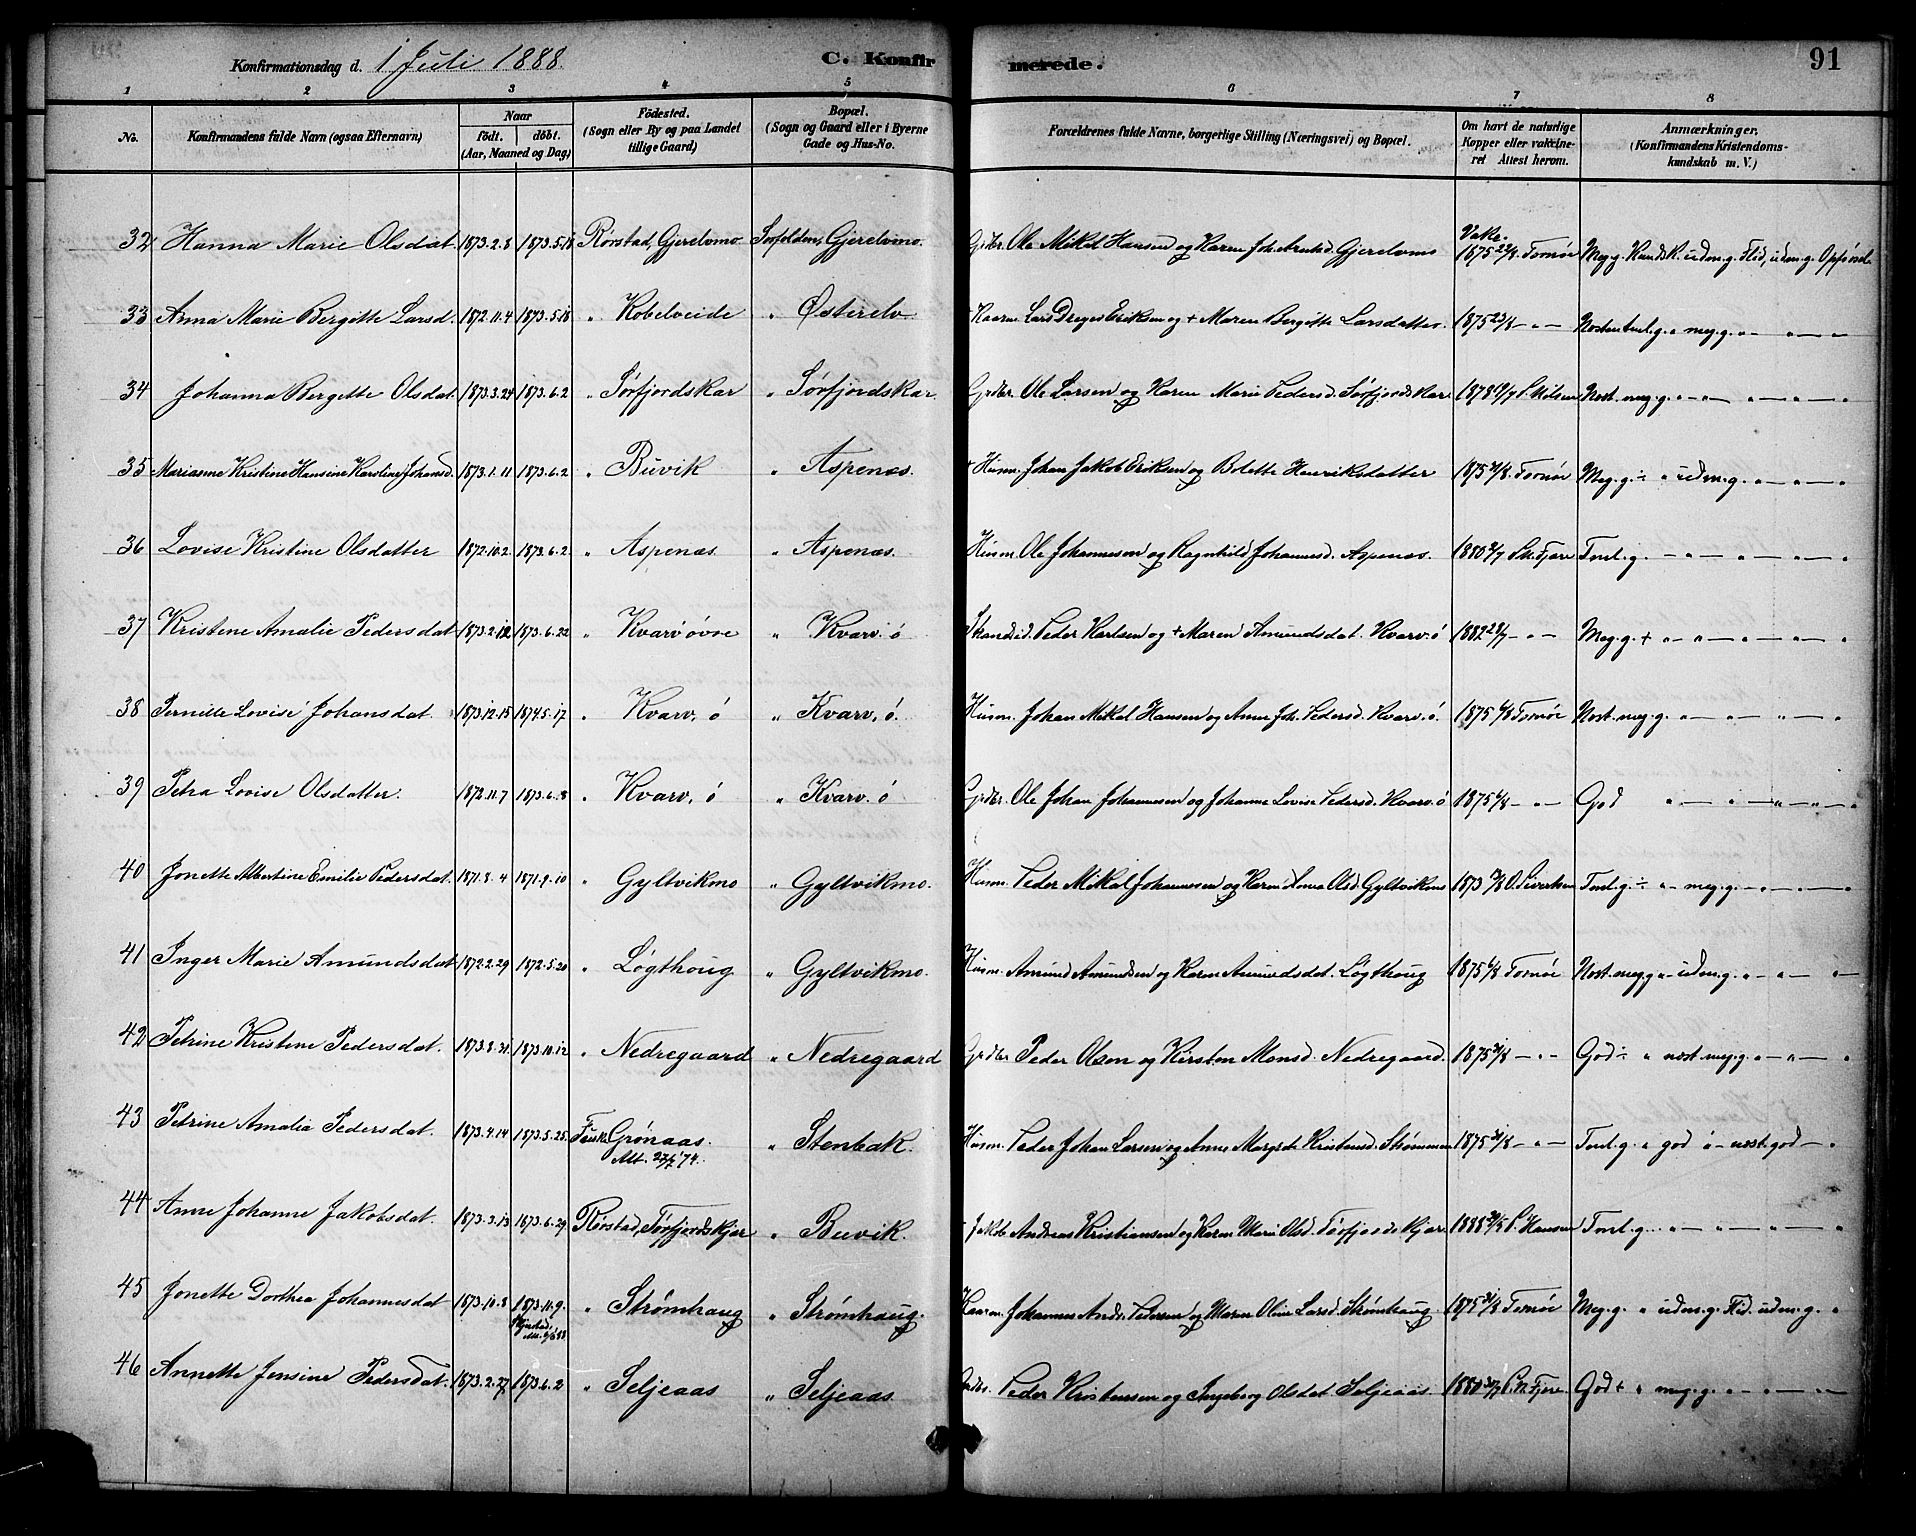 Konfirmationsdag d. 1 Juli 1888. C. Konfirmerede. 91
1 2 3 4 5 6 7 8
No. Konfirmandens fulde Navn (ogsaa Efternavn) Naar født. døbt. (Aar, Maaned og Dag) Fødested. (Sogn eller By og paa Landet tillige Gaard) Bopæl. (Sogn og Gaard eller i Byerne Gade og Hus-No. Forældrenes fulde Navne, borgerlige Stilling (Næringsvei) og Bopæl. Om havt de naturlige Kopper eller vakcineret Attest herom. Anmærkninger. (Konfirmandens Kristendomskundskab m. V.)
32 Hanna Marie Olsdat 1873.2.8 1873.5.18 Rørstad, Gjerelvmo Sørfolden, Gjerelvmo. Grdbr. Ole Mikal Hansen og Karen Joh. Arntsd. Gjerelvmo Vakc. 1875 22/8 Tornøe Meg.g. Kundsk. udm.g. Flid, udm.g. Opførsel
33 Anna Marie Bergitte Larsd. 1872.11.4 1873.5.18 " Kobelveide " Østerelv Kaarm. Lars Dreyer Eriksen og + Maren Bergitte Larsdatter. 1875 23/8 — " — Næsten tml.g. " meg.g. " — " — " —
34 Johanna Bergitte Olsdat. 1873.3.24 1873.6.2 " Sørfjordskar " Sørfjordskar. Grdbr. Ole Larsen og Karen Marie Pedersd. Sørfjordskar 1878 19/7 P. Nilsen Næst. meg.g. " — " — " — " — "
35 Marianne Kristine Hansine Karoline Johansd. 1873.1.11 1873.6.2 " Buvik " Aspenæs. + Husm. Johan Jakob Eriksen og Bolette Henriksdatter 1875 31/8. Tornøe Meg.g. ÷ " udm.g. " — " — " —
36 Lovise Kristine Olsdatter 1872.10.2. 1873.6.2. " Aspenæs " Aspenæs. Husm. Ole Johannesen og Ragnhild Johannesd. Aspenæs. 1880 2/7 P.N. Fjære Tml.g. — " — " — " — " — "
37 Kristene Amalie Pedersdat 1873.2.12 1873.6.22 " Kvarv øvre " Kvarv. ø Peder Karlsen og + Maren Amundsdat. Kvarv. ø 1882 28/7 — " — Meg.g. + " — " — " — " — " —
38 Pernille Lovise Johansdat. 1873.12.15 1874.5.17 " Kvarv, ø " Kvarv, ø. Husm. Johan Mikal Hansen og Anne Joh. Pedersd. Kvarv. ø. 1875 6/8 Tornøe Næst. meg.g. " — " — " — " — "
39 Petra Lovise Olsdatter. 1872.11.7 1873.6.8 " Kvarv, ø " Kvarv. ø Grdbr. Ole Johan Johannesen og Johanne Lovise Pedersd. Kvarv. ø 1875 6/8 — " — God " — " — " — " — "
40 Jonette Albertine Emilie Pedersdat. 1871.8.4 1871.9.10 " Gyltvikmo " Gyltvikmo. Husm. Peder Mikal Johannesen og Karen Anna Olsd. Gyltvikmo 1873 O. Sivertsen Tml.g. ÷ " — meg.g. — " — " — "
41 Inger Marie Amundsdat 1872.2.29 1872.5.20 " Løgthoug " Gyltvikmo. Husm. Amund Amundsen og Karen Amundsdat. Løgthoug 1875 6/8 Tornøe Næst. meg.g " — udm.g. " — " — " —
42 Petrine Kristine Pedersdat. 1873.8.31. 1873.10.12 " Nedregaard " Nedregaard Grdbr. Peder Olsen og Kirsten Monsd. Nedregaard. 1875 31/8 — " — God ÷ " næst. meg.g. " — " — " —
43 Petrine Amalia Pedersdat. 1873.4.14 1873.5.25. Fauske Grønaas. Att. 22/7 '74. " Stenbak. Husm. Peder Johan Larsen og Anne Margrete Kristensd. Strømmen 1875 31/8 — " — Tml.g. " god " — næst. god — "
44 Anne Johanne Jakobsdat. 1873.3.13 1873.6.29 Rørstad, Tørfjordskjær " Buvik. Jakob Andreas Kristiansen og Karen Marie Olsd. Tørfjordskjær 1888 P. Hansen Tml.g. " — " — " — " — "
45 Jonette Dorthea Johannesdat 1873.10.8 1873.11.9. " Strømhaug " Strømhaug. Kaarm. Johannes Andr. Pedersen og Maren Oline Larsd. Strømhaug 1875 31/8 Tornøe Meg.g. " udm.g. Flid. udm.g. "
46 Annette Jensine Pedersdat. 1873.2.27 1873.6.2 " Seljeaas " Seljeaas Grdbr. Peder Kristensen og Ingeborg Olsdat Seljeaas 1880 P.N. Fjære God + " meg.g. " — " — " —